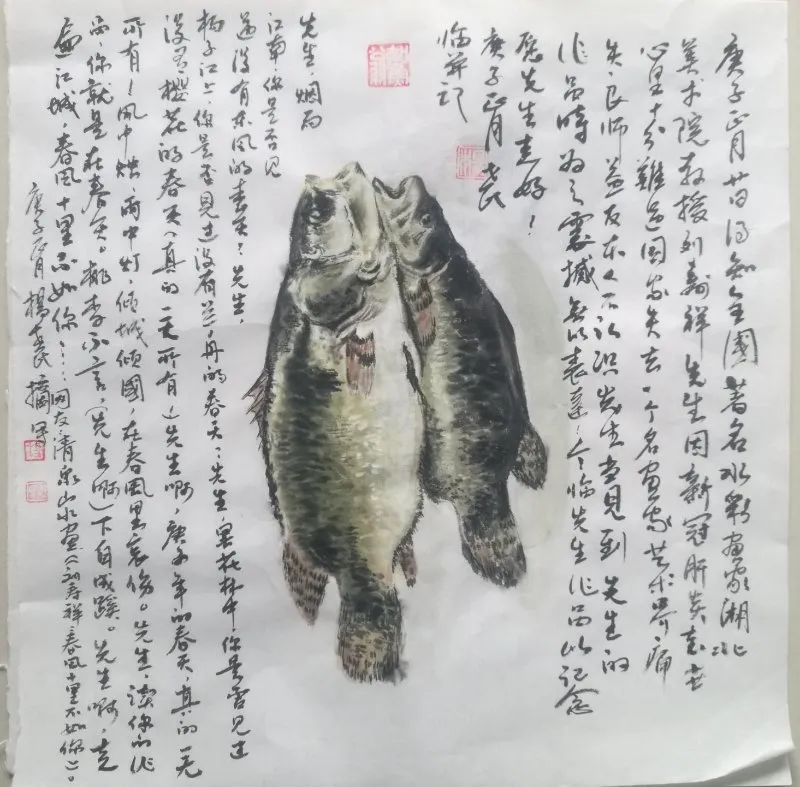 庚子正月廿四得知全國著名水彩畫家湖北
美术院教授刘壽祥先生因新冠肺炎去世
心里十分難过国家失去一个名画家艺术界痛
失良师益友本人不认识先生当見到先生的
作品時為之震撼無以表達今临先生作品以记念
愿先生走好！
庚子正月老农
临并记
先生，烟雨
江南你是否见
过没有东风的春天？先生，
扬子江上，你是否见过没有兰舟的春天？先生，花林中，你是否见过
没有樱花的春天（真的一无所有）先生啊，庚子年的春天，真的一无
所有！风中烛，雨中灯，倾城倾國，在春风里哀伤。先生，读你的作
品，你就是在春天。桃李不言，（先生啊）下自成蹊。先生啊，走
遍江城，春风十里不如你……网友清泉山水画《刘寿祥春风十里不如你》。
庚子正月楊老农摘写